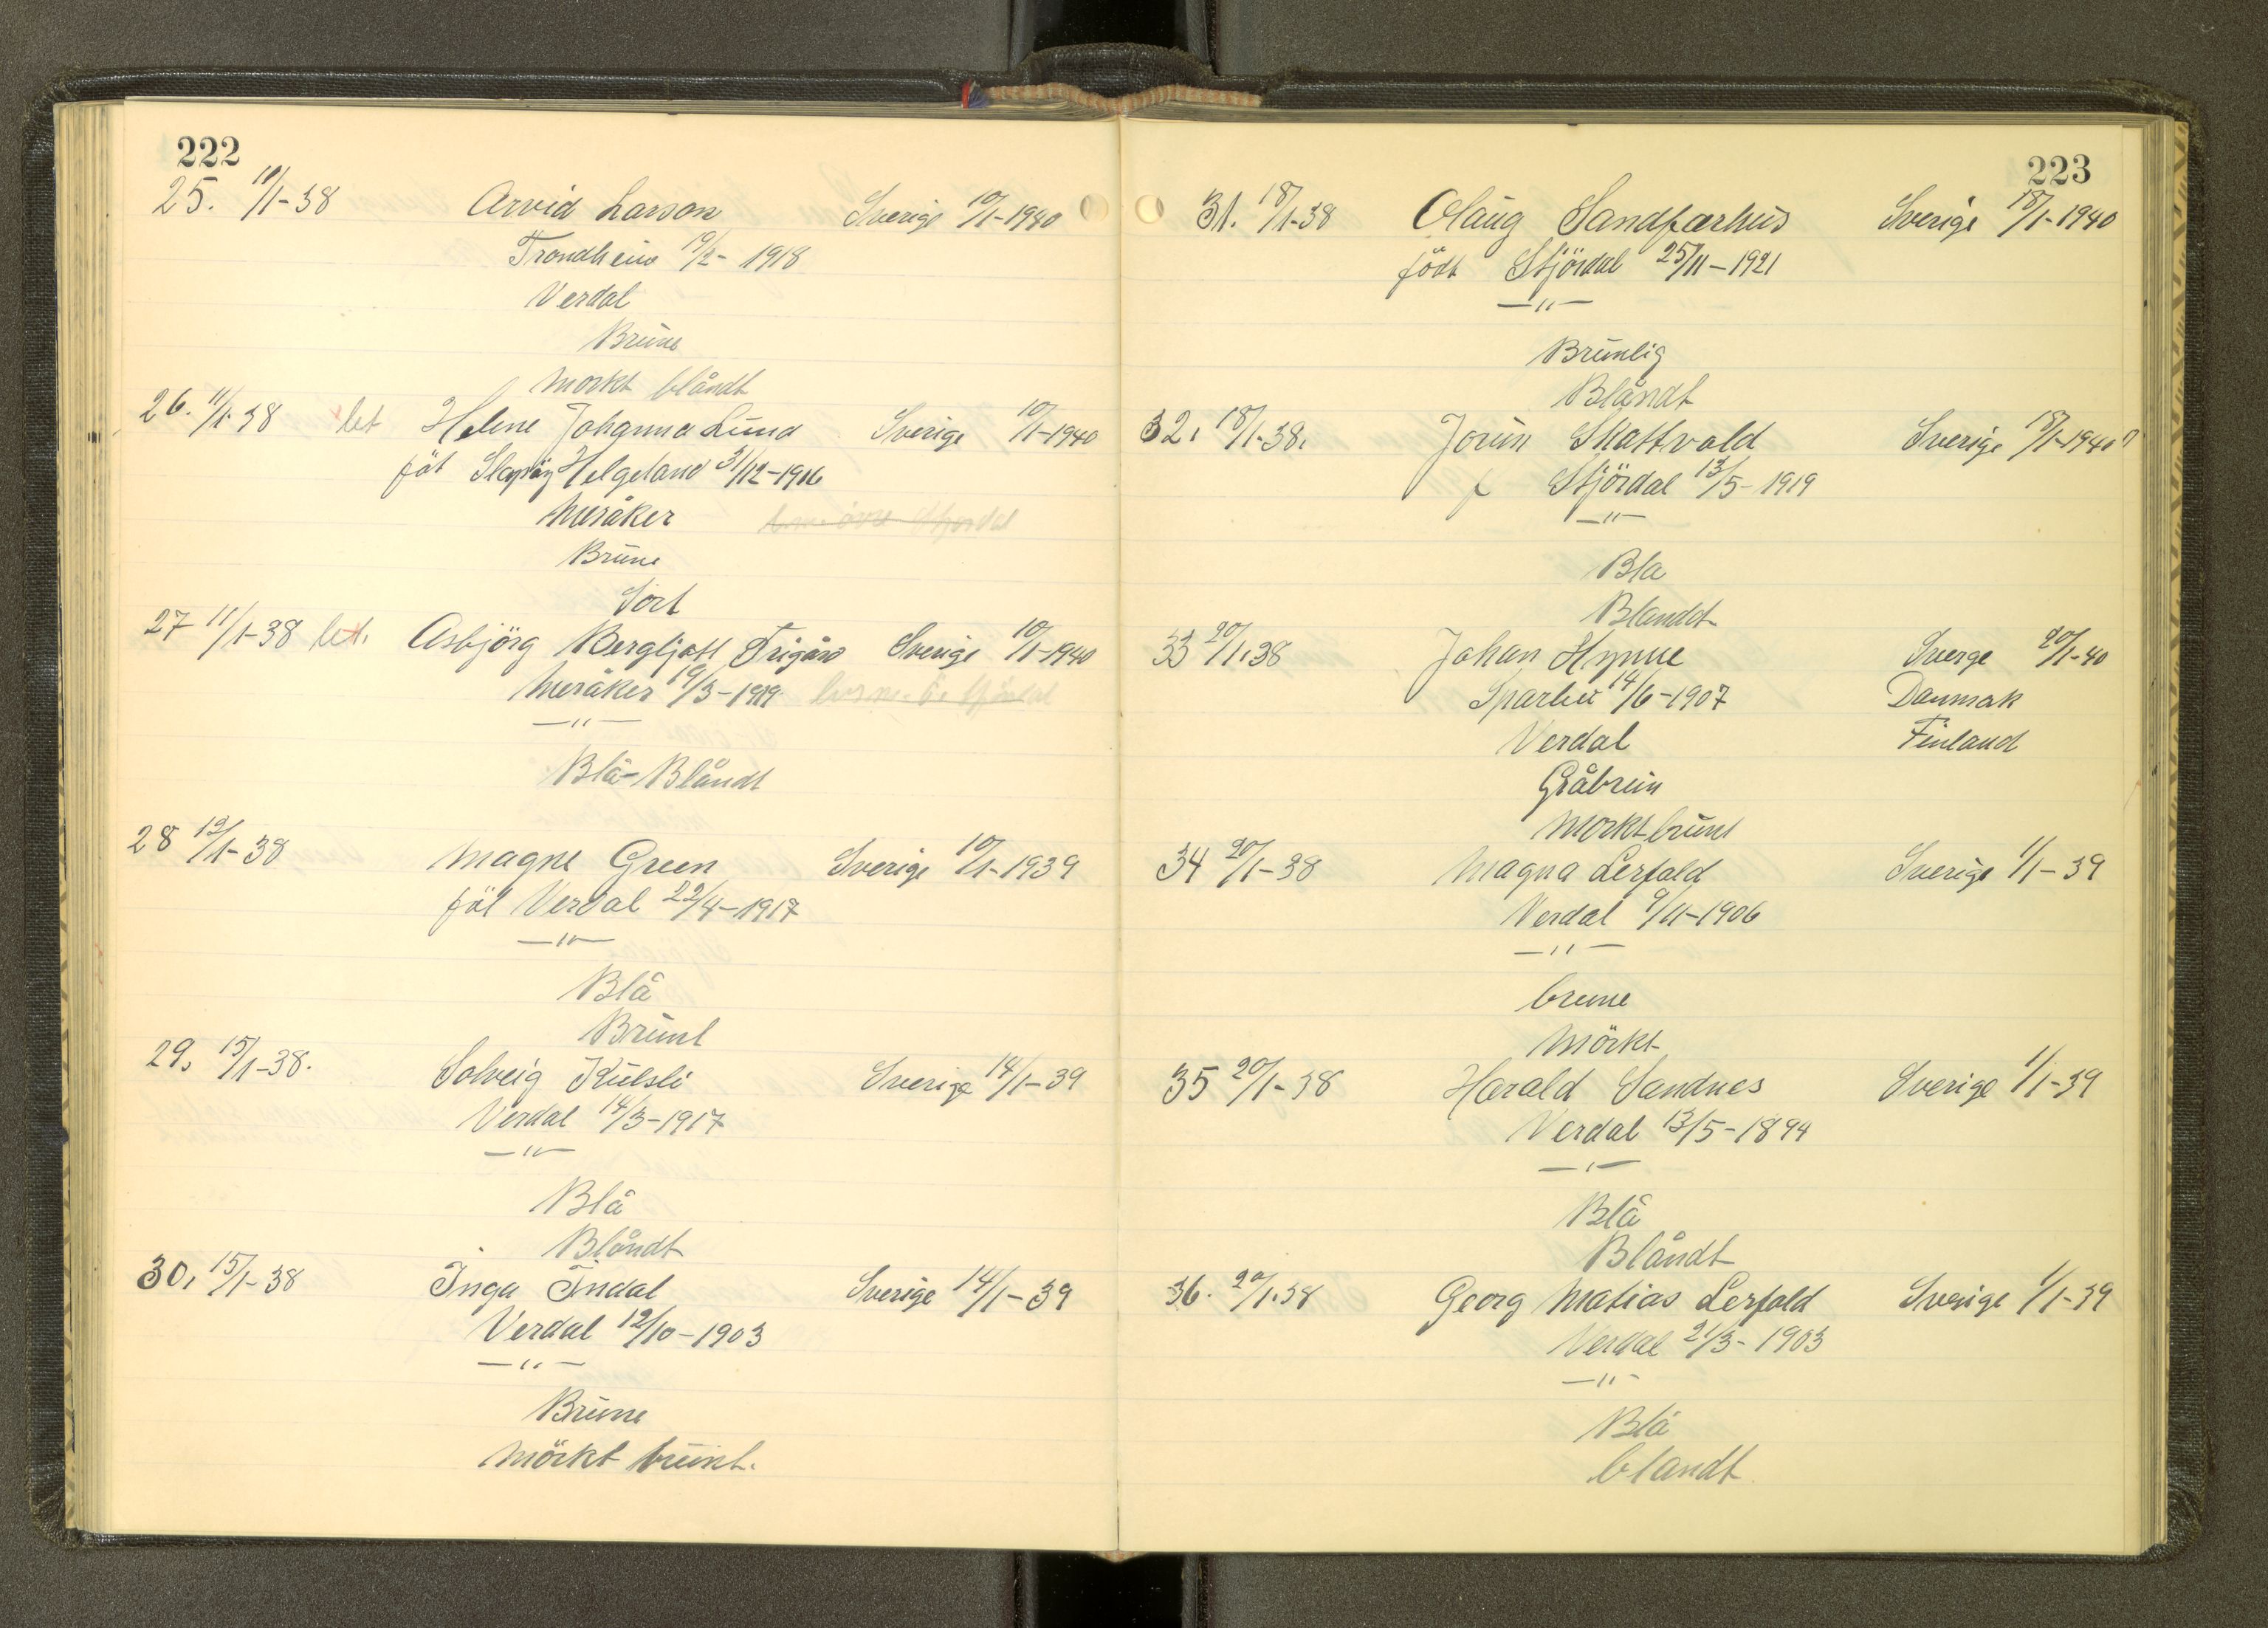 222
25. 11/1-38 Arvid Larson Sverige 10/1-1940
Trondheim 19/2- 1918
Verdal
Brune
morkt blåndt
26. 11/1-38 let Helene Johanna Lund Sverige 10/1-1940
föt Helgeland 31/12-1916
Meråker
Brune
Sort
27 11/1-38 let. Asbjörg Bergljott Trigård Sverige 10/1-1940
Meråker 19/3-1919.
—"—
Blå-Blåndt
28 12/1-38 Magne Green Sverige 10/1-1939
föt Verdal 22/4-1917
—"—
Blå
Brunt
29. 15/1-38. Solveig Kulsli Sverige 14/1-39
Verdal 14/3-1917
—"—
Blå
Blåndt
30. 15/1-38 Inga Indal Sverige 14/1-39
Verdal 12/10-1903
—"—
Brune
Mörkt brunt.
223
31. 18/1-38 Olaug Sandfærhus Sverige 18/1-1940
födt Stjördal 25/11-1921
—"—
Brunlig
Blåndt
32. 18/1-38. Jorun Skattvold Sverige 18/1-1940
f Stjördal 13/5-1919
—"—
Bla
Blandt
33 20/1.38 Johan Hynne Sverge 20/1-40
Sparbu 14/6-1907 Danmak
Verdal Finland
Gråbrun
Morkt brunt
34 20/1-38 Magna Lerfald Sverige 1/1-39
Verdal 9/11-1906
—"—
brune
Mörkt
35 20/1-38 Harald Sandnes Sverige 1/1-39
Verdal 13/5-1894
—"—
Blå
Blåndt
36. 20/1.38 Georg Matias Lerfald Sverige 1/1-39
Verdal 21/3-1903
—"—
Blå
blandt